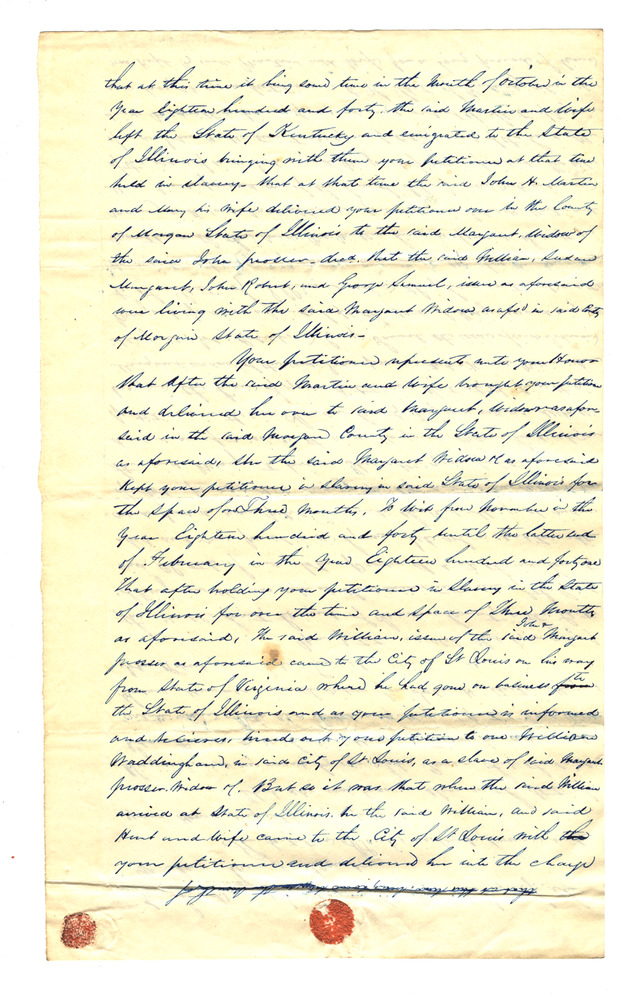 that at this time it being some time in the Month of October in the
Year Eighteen hundred and forty the said Martin and Wife
left the State of Kentucky and emigrated to the State
of Illinois bringing with them your petitioner at that time
held in slavery. that at that time the said John H. Martin
and Mary his wife delivered your petitioner over in the County
of Morgan State of Illinois to the said Margaret, Widow of
the said John prosser decd, that the said William, Susan
Margaret, John Robert, and George Samuel, issue as aforesaid
were living with the said Margaret Widow as afsd in said Cty
of Morgan State of Illinois—
Your petitioner represents unto your Honor
that After the said Martin and wife brought your petition
and delivered her over to said Margaret, Widow as afore
said in the said Morgan County in the State of Illinois
as aforesaid, She the said Margaret Widow &c as aforesaid
Kept your petitioner in slavery in said State of Illinois for
the space of over Three Months, To Wit from November in the
Year Eighteen hundred and forty until the latter end
of February in the Year Eighteen hundred and forty one
That after holding your petitioner in Slavery in the State
of Illinois for over the time and space of Three Months
as aforesaid, The said William, issue of the said John & Margaret
prosser as aforesaid came to the City of St Louis on his way
from State of Virginia where he had gone on business to
the State of Illinois and as your petitioner is informed
and believes, hired out your petition to one William
Waddingham, in said City of St Louis, as a slave of said Margaret
prosser, Widow &c. But so it was that when the said William
arrived at State of Illinois, he the said William, and said
Hunt and Wife came to the City of St Louis with the
your petitioner and delivered her into the charge